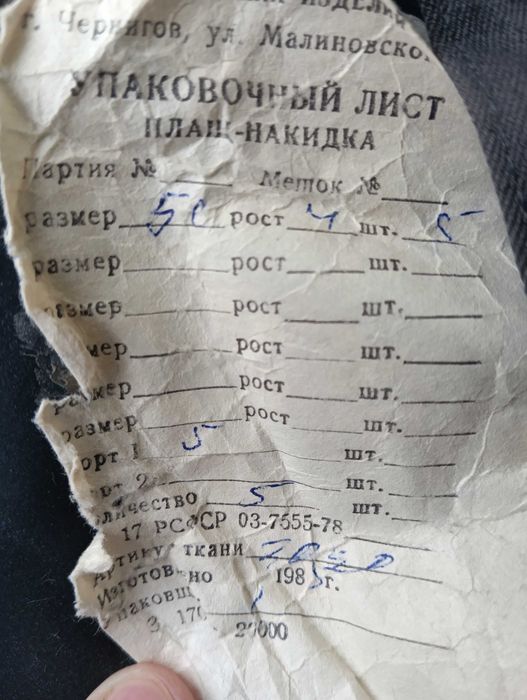 ИЗДЕЛИ
г. Чернигов, ул. Малиновско
УПАКОВОЧНЫЙ ЛИСТ
ПЛАЩ-НАКИДКА
Партия № ____ Меток № ____
размер 50 рост 4 шт. 5
размер ____ рост ____ шт. ____
змер ____ рост ____ шт. ____
мер ____ рост ____ шт. ____
размер ____ рост ____ шт. ____
размер ____ рост ____ шт. ____
орт 1 5 шт. ____
рт 2 ____ шт. ____
личество 5 шт. ____
17 РСФСР 03-7555-78
Артикул ткани
Изготов но 198 г.
Упаковщ.
З. 170 20000